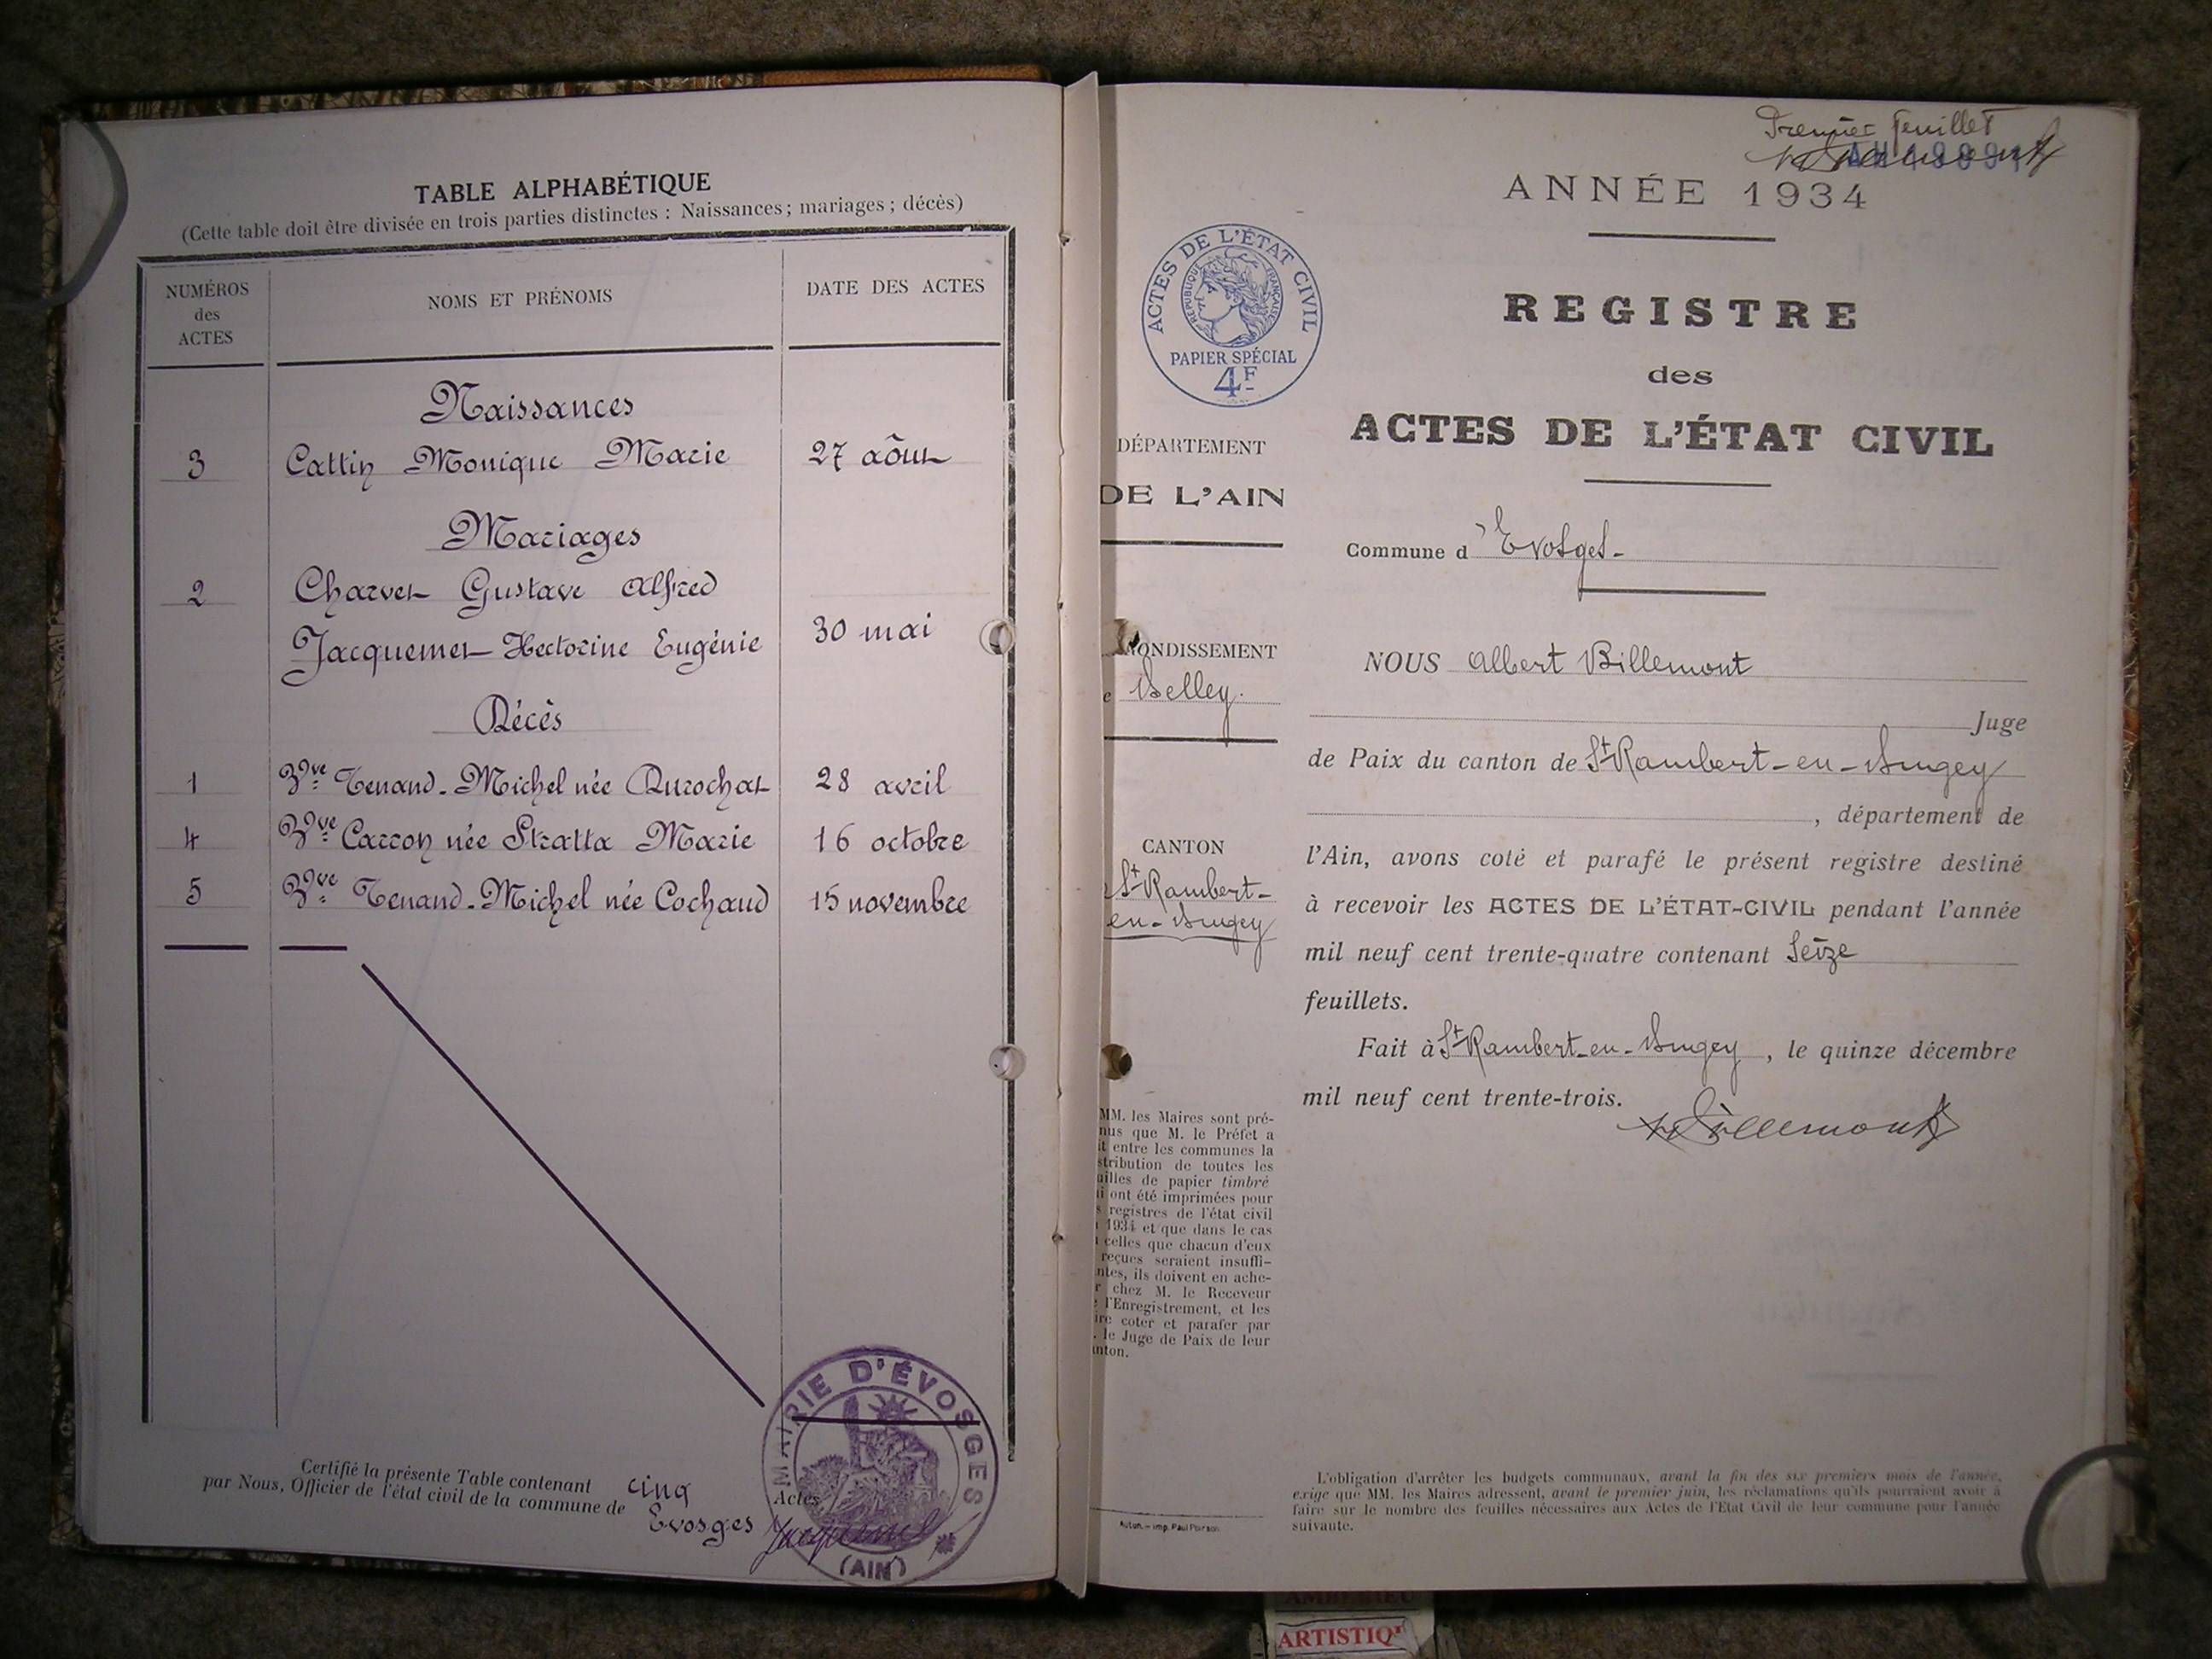 TABLE ALPHABÉTIQUE
(Cette table doit être divisée en trois parties distinctes : Naissances ; mariages ; décès)
NUMÉROS
des
ACTES
NOMS ET PRÉNOMS
DATE DES ACTES
Naissances
3 Cattin Monique Marie 27 aôut
Mariages
2 Charvet Gustave Alfred
Jacquemet Hectorine Eugénie 30 mai
Décès
1 Vve Tenand-Michel née Durochat 28 avril
4 Vve Carron née Stratta Marie 16 octobre
5 Vve Tenand-Michel née Cochaud 15 novembre
Certifié la présente Table contenant cinq Actes
par Nous, Officier de l'état civil de la commune de Evosges
Jacquemet
MAIRIE D'ÉVOSGES
(AIN)
Premier feuillet
ANNÉE 1934
ACTES DE L'ÉTAT CIVIL
RÉPUBLIQUE FRANÇAISE
PAPIER SPÉCIAL
4F
DÉPARTEMENT
DE L'AIN
ONDISSEMENT
e Belley.
CANTON
St Rambert-
en-Bugey
MM. les Maires sont pré-
nus que M. le Préfet a
it entre les communes la
stribution de toutes les
uilles de papier timbré
i ont été imprimées pour
s registres de l'état civil
1934 et que dans le cas
celles que chacun d'eux
reçues seraient insuffi-
ntes, ils doivent en ache-
r chez M. le Receveur
l'Enregistrement, et les
ire coter et parafer par
. le Juge de Paix de leur
nton.
Autun. – imp. Paul Poirson
REGISTRE
des
ACTES DE L'ÉTAT CIVIL
Commune d'Evosges-
NOUS Albert Billemont
Juge
de Paix du canton de St Rambert-en-Bugey
, département de
l'Ain, avons coté et parafé le présent registre destiné
à recevoir les ACTES DE L'ÉTAT-CIVIL pendant l'année
mil neuf cent trente-quatre contenant Seize
feuillets.
Fait à St Rambert-en-Bugey, le quinze décembre
mil neuf cent trente-trois.
Billemont
L'obligation d'arrêter les budgets communaux, avant la fin des six premiers mois de l'année,
exige que MM. les Maires adressent, avant le premier juin, les réclamations qu'ils pourraient avoir à
faire sur le nombre des feuilles nécessaires aux Actes de l'Etat Civil de leur commune pour l'année
suivante.
AMBERIEU
ARTISTIQ